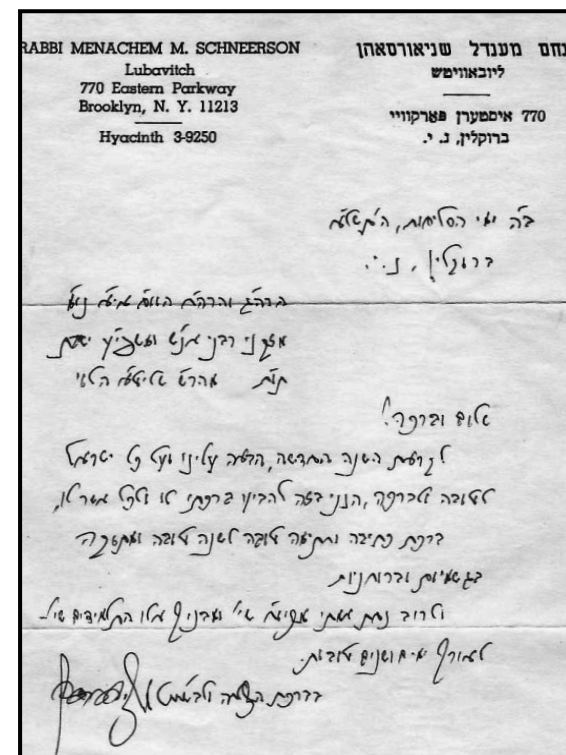 RABBI MENACHEM M. SCHNEERSON
Lubavitch
770 Eastern Parkway
Brooklyn, N. Y. 11213
Hyacinth 3-9250
נחם מענדל שניאורסאהן
ליובאוויטש
770 איסטערן פארקוויי
ברוקלין, נ. י.
ב"ה ימי הסליחות,
ברוקלין, נ.י.
הרה"ג והרה"ח הוו"ח אי"א נו"נ
רבני אנ"ש
שליט"א הלוי
שלום וברכה!
לקראת השנה החדשה, הבאה עלינו ועל כל ישראל
לטובה ולברכה, הנני בזה להביע ברכתי לו ולכל אשר לו,
ברכת כתיבה וחתימה טובה לשנה טובה ומתוקה
בגשמיות וברוחניות
ולרוב נחת שי' אלו התלמידים שי'
לאורך ימים ושנים טובות.
בברכת הצלחה